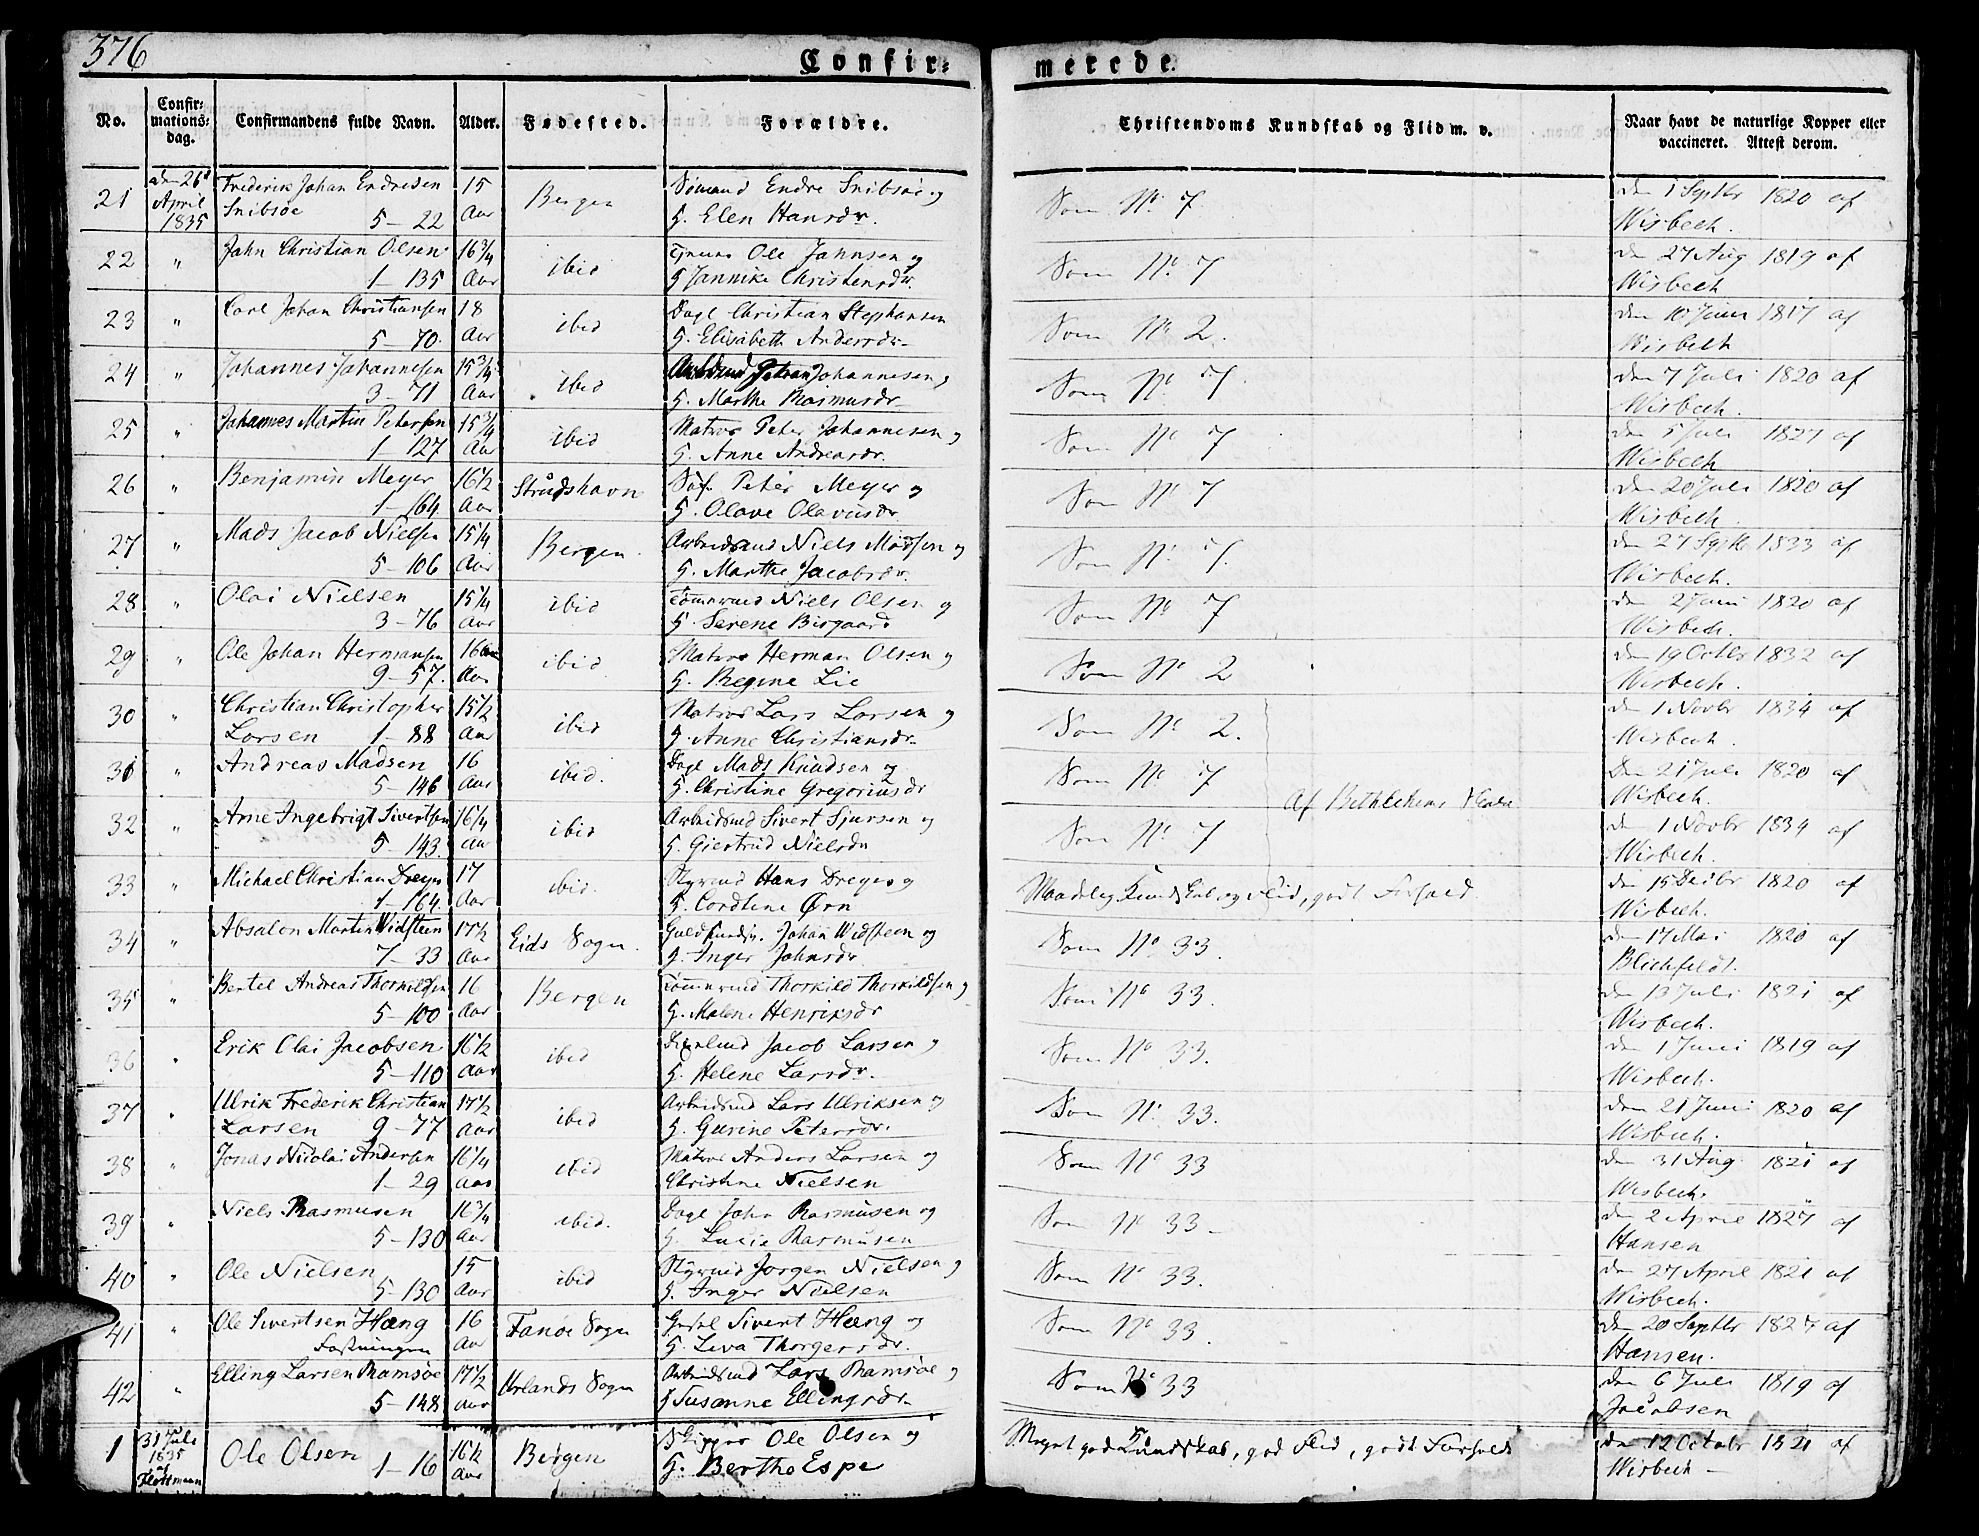 376
Confir=
merede.
No.
Confir=
mations=
dag.
Confirmandens fulde Navn.
Alder.
Fødested.
Forældre.
Christendoms Kundskab og Flid m. v.
Naar havt de naturlige Kopper eller
vaccineret. Attest derom.
21 den 26d April 1835 Frederik Johan Endresen 15 Aar Bergen Sömand Endre Snibsöe og Som No 7 den 1 Septbr 1820 af
Snibsöe 5 - 22 H. Elen Hansdr. Wisbech.
22 " Jahn Christian Olsen 16 3/4 Aar ibid Ole Jahnsen og Som No 7 den 27 Aug 1819 af
1 - 135 H Jannike Christensdr. Wisbech
23 " Carl Johan Christiansen 18 Aar ibid Dagl Christian Stephansen Som No 2. den 10 Juni 1817 af
5 - 70. H. Elisabeth Andersdr. Wisbech
24 " Johannes Johannesen 15 3/4 Aar ibid Johannesen Som No 7 den 7 Juli 1820 af
3 - 71 H. Marthe Rasmusdr Wisbech.
25 " Johannes Martin Petersen 15 3/4 Aar ibid Matros Peter Johannesen og Som No 7 den 5 Juli 1827 af
1 - 127 H. Anne Andreasdr. Wisbech
26 " Benjamin Meyer 16 1/2 Aar Strudshavn Peter Meyer og Som No 7 den 20 Juli 1820 af
1 - 164 H. Olave Olavusdr Wisbech.
27 " Mads Jacob Nielsen 15 1/4 Aar Bergen. Arbeidsmd Niels Madsen og Som No 7. den 27 Septbr 1833 af
5 - 106 H. Marthe Jacobsdr. Wisbech.
28 " Olai Nielsen 15 1/4 Aar ibid Tömmrmd Niels Olsen og Som No 7 den 2 Juni 1820 af
3 - 76 H. Serene Birgaard Wisbech.
29 " Ole Johan Hermansen 16 Aar ibid Matros Herman Olsen og Som No 2 den 19 Octbr 1832 af
9 - 57. H. Regine Lie Wisbech.
30 " Christian Christopher 15 1/2 Aar ibid Matros Lars Larsen og Som No 2. den 1 Novbr 1834 af
Larsen 1 - 88 H. Anne Christiansdr. Wisbech.
31 " Andreas Madsen 16 Aar ibid. Dagl Mads Knudsen og Som No 7 Den 21 Juli 1820 af
5 - 146 H. Christine Gregoriusdr Wisbech.
Af Bethlehems Skole
32 " Arne Ingebrigt Sivertsen 16 1/4 Aar ibid Arbeidsmd Sivert Sjursen og Som No 7 den 1 Novbr 1834 af
5 - 143. H. Giertrud Nielsdr Wisbech.
33 " Michael Christian Dreyer 17 Aar ibid. Styrmd Hans Dreyer og Maadelig Kundskab og Flid, godt Forhold den 15 Decbr 1820 af
1 - 164. H. Cordtine Ørn Wisbech.
34 " Absalon Martin Widsteen 17 1/2 Aar Eids Sogn. Johan Widsteen og Som No 33. den 17 Mai 1820 af
7 - 33 H. Inger Johnsdr. Blichfeldt.
35 " Bertel Andreas Thorkildsen 16 Aar Bergen Tömmrmd Thorkild Thorkildsen og Som No 33. den 13 Juli 1821 af
5 - 100 H. Malene Henriksdr Wisbech.
36 " Erik Olai Jacobsen 16 1/2 Aar ibid Jacob Larsen og Som No 33. den 1 Juni 1819 af
5 - 110 H. Helene Larsdr. Wisbech.
37 " Ulrik Frederik Christian 17 1/2 Aar ibid Arbeidsmd Lars Ulriksen og Som No 33. den 21 Juni 1820 af
Larsen 9 - 77 H. Gurine Petersdr. Wisbech.
38 " Jonas Nicolai Andersen 16 1/4 Aar ibid Matros Anders Larsen og Som No 33 den 31 Aug 1821 af
1 - 29 Christine Nielsen Wisbech.
39 " Niels Rasmusen 16 3/4 Aar ibid. Dagl John Rasmusen og Som No 33 - den 2 April 1827 af
5 - 130 H. Lucie Rasmusen Hansen
40 " Ole Nielsen 15 Aar ibid Styrmd Jorgen Nielsen og Som No 33. den 27 April 1821 af
5 - 130 H. Inger Nielsen Wisbech.
41 " Ole Sivertsen Hæng 16 Aar Fanöe Sogn Sivert Hæng og Som No 33. den 20 Septbr 1827 af
Fæstningen H. Siva Thorgersdr. Hansen.
42 " Elling Larsen Ramsöe 17 1/2 Aar Urlands Sogn Arbeidsmd Lars Ramsöe og Som No 33 den 6 Juli 1819 af
5 - 148 H Susanne Ellingsdr. Jacobsen
1 31 Juli 1835 af Flottmann Ole Olsen 1 - 16 16 1/2 Aar Bergen Ole Olsen og Meget god Kundskab, god Flid, godt Forhold den 12 Octobr 1821 af
H. Berthe Espe Wisbech -